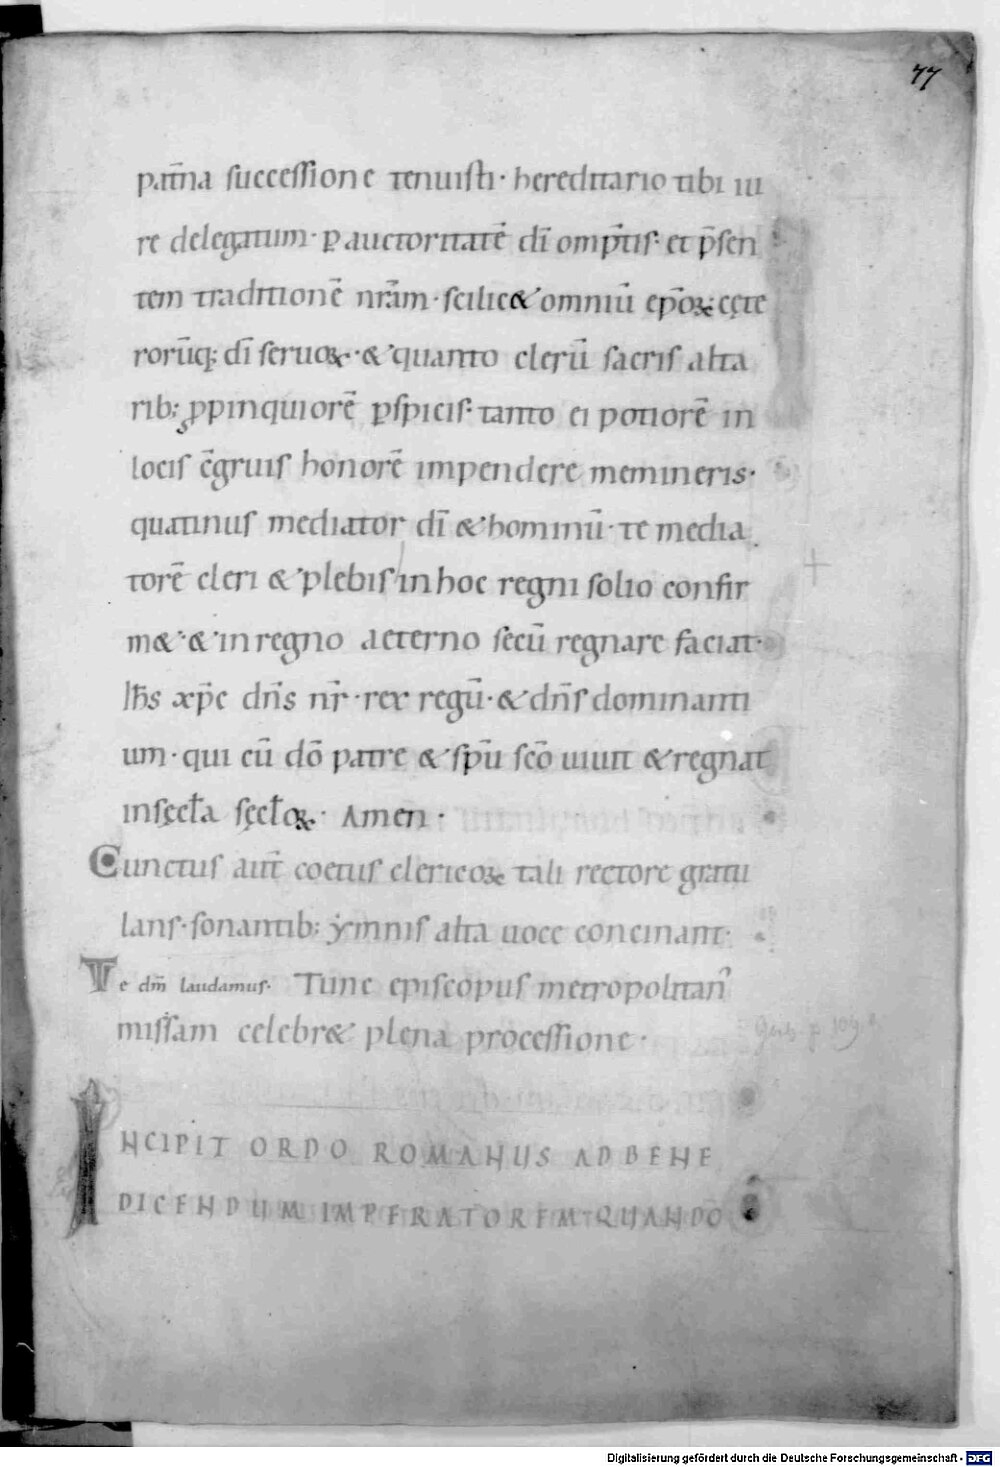 77
pat̄na successione tenuisti· hereditario tibi iu
re delegatum· ꝑ auctoritatē dī omp̄tis· et p̄sen
tem traditionē nr̄am· scilic& omniū ep̄oꝝ cęte
rorūq; dī seruoꝝ· & quanto clerū sacris alta
rib; ꝓpinquiorē ꝑspicis· tanto ei potiorē in
locis c̄gruis honorē impendere memineris·
quatinus mediator dī & hominū· te media
torē cleri & plebis in hoc regni solio confir
m&· & in regno aeterno secū regnare faciat·
Ihs̄ xp̄c dn̄s nr̄· rex regū· & dn̄s dominanti
um· qui cū dō patre & sp̄u scō uiuit & regnat
in sęcl̄a sęcl̄oꝝ· Amen·
Cunctus aut̄ coetus clericoꝝ tali rectore gratu
lans· sonantib; ẏmnis alta uoce concinant·
Te dm̄ laudamus· Tunc episcopus metropolitan̄
missam celebr& plena processione·
INCIPIT ORDO ROMANUS AD BENE
DICENDUM IMPERATOREM· QUANDO
Digitalisierung gefördert durch die Deutsche Forschungsgemeinschaft - DFG